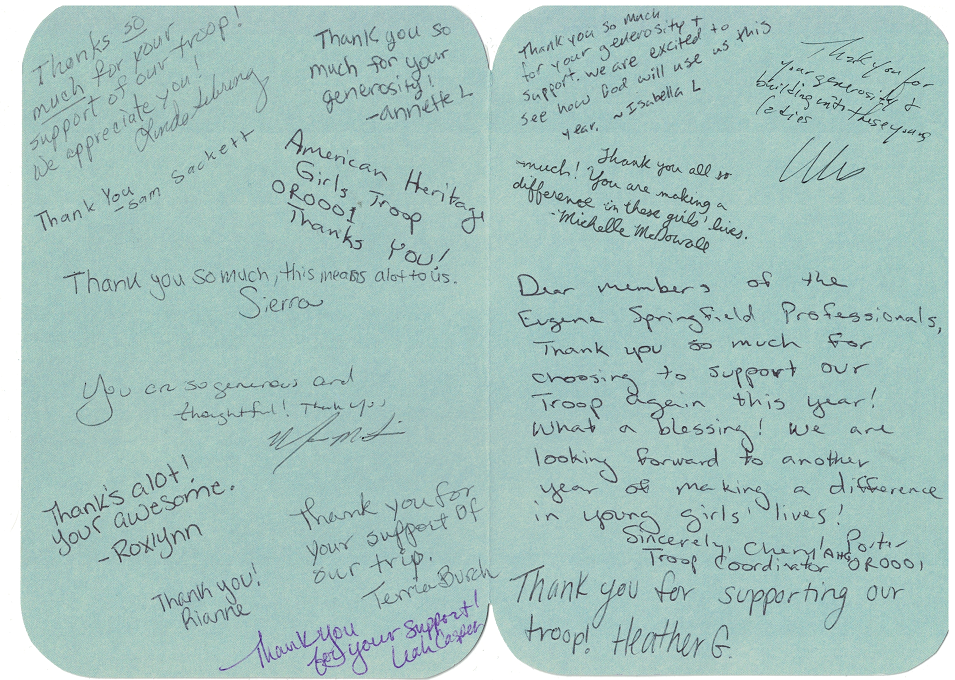 Thanks so
much for your
support of our troop!
We appreciate you!
Thank you so
much for your
generosity!
-Annette L
Thank You
-Sam Sackett
American Heritage
Girls Troop
OR0001
Thanks
You!
Thank you so much, this means alot to us.
Sierra
You are so generous and
thoughtful! Thank you
Thank's alot!
your awesome.
-Roxlynn
Thank you for
your support of
our trip.
Terria Burch
Thank you!
Rianne
Thank you
for your support!
Leah Casper
Thank you so much
for your generosity &
support. We are excited to
see how God will use us this
year. ~Isabella L
Thank you for
your generosity &
building into these young
ladies
Thank you all so
much! You are making a
difference in these girls' lives.
-Michelle McDowall
Dear members of the
Eugene Springfield Professionals,
Thank you so much for
choosing to support our
Troop again this year!
What a blessing! We are
looking forward to another
year of making a difference
in young girls' lives!
Sincerely, Cheryl Porter
Troop Coordinator AHG OR0001
Thank you for supporting our
troop! Heather G.